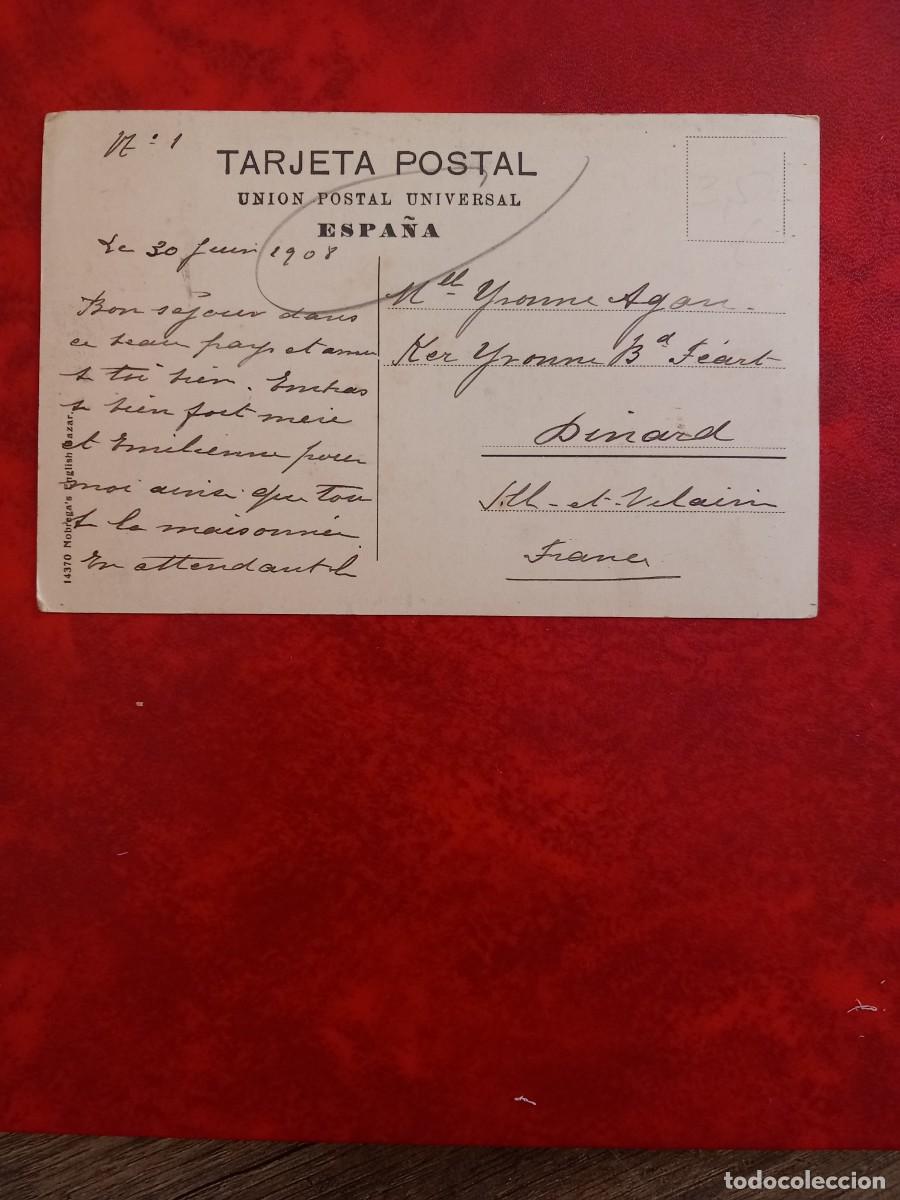 Nº 1
TARJETA POSTAL
UNION POSTAL UNIVERSAL
ESPAÑA
Le 30 Juin 1908
Bon séjour dans
ce beau pays et amu
se toi bien. Embras
se bien fort mère
et Emilienne pour
moi ainsi que tou
te la maisonnée
En attendant
Mlle Yvonne Agan
Ker Yvonne Bd Féart
Dinard
Ille-et-Vilaine
France
14370 Nobrega's English Bazar.
todocoleccion